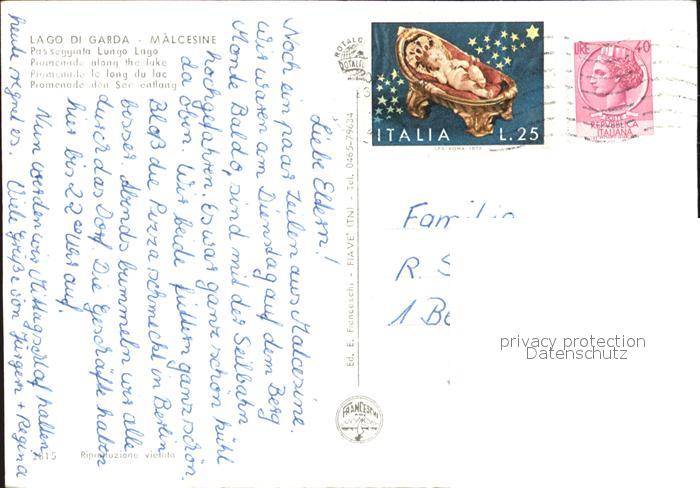 LAGO DI GARDA - MALCESINE
Passeggiata Lungo Lago
Promenade along the lake
Promenade le long du lac
Promenade den See entlang
Liebe Eltern!
Noch ein paar Zeilen aus Malcesine.
Wir waren am Dienstag auf dem Berg
Monte Baldo, sind mit der Seilbahn
hochgefahren. Es war ganz schön kühl
da oben. Wir beide futtern ganz schön.
Bloß die Pizza schmeckt in Berlin
besser. Abends bummeln wir alle
durch das Dorf. Die Geschäfte haben
hier bis 22 00 Uhr auf.
Nun werden wir Mittagschlaf halten,
heute regnet es. Viele Grüße von Jürgen + Regina
2815 Riproduzione vietata
Ed. E. Franceschi - FIAVE' (TN) - Tel. 0465-79604
FRANCESCHI
ITALIA L.25
ROMA 1972
LIRE 40
REPVBBLICA
ITALIANA
Familie
R. S
1 Be
privacy protection
Datenschutz